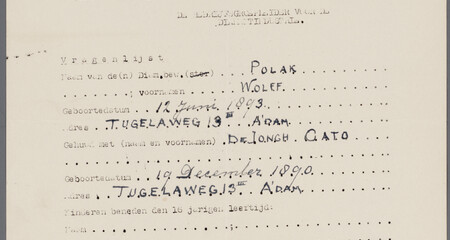 Vragenlijst
Naam van de(n) Diam.bew.(ster) . . . POLAK
; voornamen . . WOLFF
Geboortedatum . . 12 Juni 1893
adres . TUGELAWEG 13 III A'DAM
Gehuwd met (naam en voornamen) . DE JONGH CATO
Geboortedatum . . 19 December 1890
adres . . TUGELAWEG 13 III A'DAM
Kinderen beneden den 16 jarigen leeftijd:
Naam